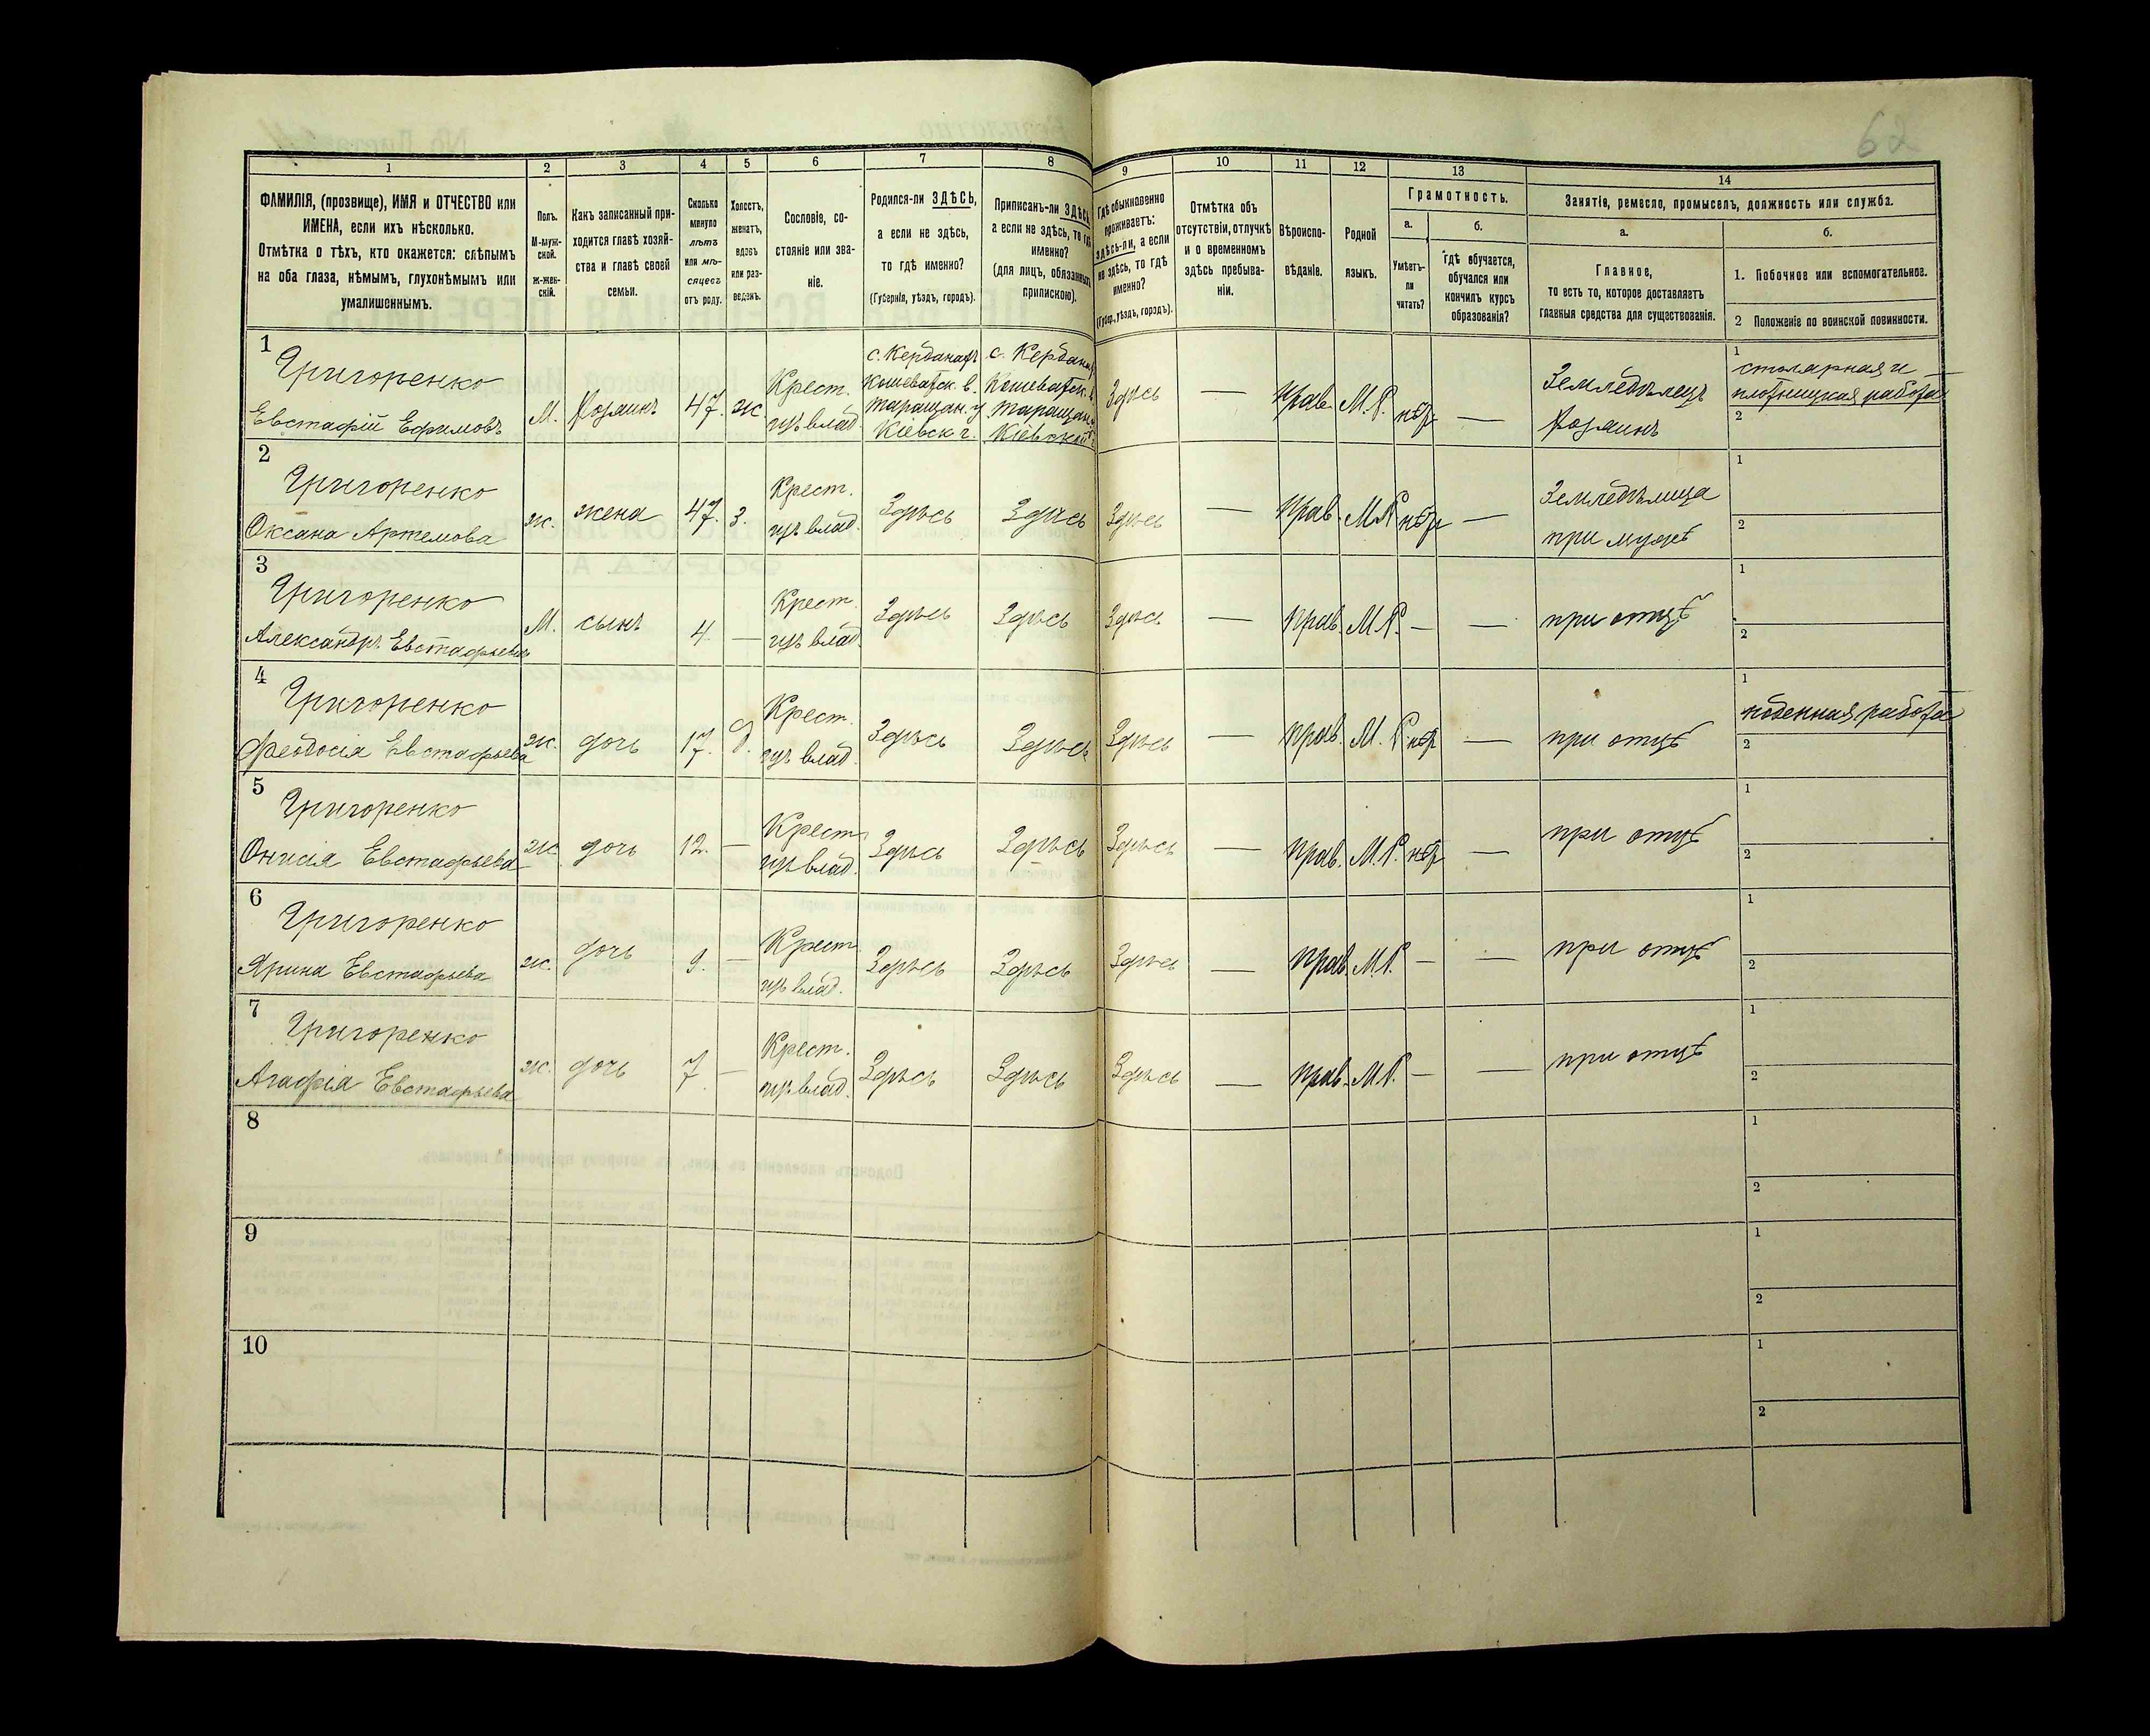 62
1 2 3 4 5 6 7 8 9 10 11 12 13 14
ФАМИЛІЯ, (прозвище), ИМЯ и ОТЧЕСТВО или
ИМЕНА, если ихъ нѣсколько.
Отмѣтка о тѣхъ, кто окажется: слѣпымъ
на оба глаза, нѣмымъ, глухонѣмымъ или
умалишеннымъ.
Полъ.
М-муж-
ской.
ж-жен-
скій.
Какъ записанный при-
ходится главѣ хозяй-
ства и главѣ своей
семьи.
Сколько
минуло
лѣтъ
или мѣ-
сяцевъ
отъ роду.
Холостъ,
женатъ,
вдовъ
или раз-
веденъ.
Сословіе, со-
стояніе или зва-
ніе.
Родился-ли ЗДѢСЬ,
а если не здѣсь,
то гдѣ именно?
(Губернія, уѣздъ, городъ).
Приписанъ-ли ЗДѢСЬ,
а если не здѣсь, то гдѣ
именно?
(для лицъ, обязанныхъ
припискою).
Гдѣ обыкновенно
проживаетъ:
здѣсь-ли, а если
не здѣсь, то гдѣ
именно?
(Губер., уѣздъ, городъ).
Отмѣтка объ
отсутствіи, отлучкѣ
и о временномъ
здѣсь пребыва-
ніи.
Вѣроиспо-
вѣданіе.
Родной
языкъ.
Грамотность.
а.
Умѣетъ-
ли
читать?
б.
Гдѣ обучается,
обучался или
кончилъ курсъ
образованія?
Занятіе, ремесло, промыселъ, должность или служба.
а.
Главное,
то есть то, которое доставляетъ
главныя средства для существованія.
б.
1. Побочное или вспомогательное.
2 Положеніе по воинской повинности.
1
Григоренко
Евстафій Ефимовъ
М.
хозяинъ
47.
ж
Крест.
изъ влад.
с. Керданахъ
Кошеватск. в.
Таращан. у
Кіевск г.
с. Кердан
Кошеватск. в
Таращан. у
Кіевской г
Здѣсь
—
Прав.
М.Р.
нѣтъ
—
Земледѣлецъ
хозяинъ
1
столярная и
плотницкая работа
2
2
Григоренко
Оксана Артемова
ж.
жена
47.
з.
Крест.
изъ влад.
Здѣсь
Здѣсь
Здѣсь
—
Прав.
М.Р.
нѣтъ
—
Земледѣлица
при мужѣ
1
2
3
Григоренко
Александръ Евстафьевъ
М.
сынъ
4.
—
Крест.
изъ влад.
Здѣсь
Здѣсь
Здѣсь
—
Прав.
М.Р.
—
—
при отцѣ
1
2
4
Григоренко
Феодосія Евстафьева
ж.
дочь
17.
д.
Крест.
изъ влад.
Здѣсь
Здѣсь
Здѣсь
—
прав.
М.Р.
нѣтъ
—
при отцѣ
1
поденная работа
2
5
Григоренко
Онисія Евстафьева
ж
дочь
12.
—
Крест.
изъ влад.
Здѣсь
Здѣсь
Здѣсь
—
прав.
М.Р.
нѣтъ
—
при отцѣ
1
2
6
Григоренко
Ярина Евстафьева
ж.
дочь
9.
—
Крест.
изъ влад.
Здѣсь
Здѣсь
Здѣсь
—
прав.
М.Р.
—
—
при отцѣ
1
2
7
Григоренко
Агафія Евстафьева
ж.
дочь
7.
—
Крест.
изъ влад.
Здѣсь
Здѣсь
Здѣсь
—
прав.
М.Р.
—
—
при отцѣ
1
2
8
1
2
9
1
2
10
1
2